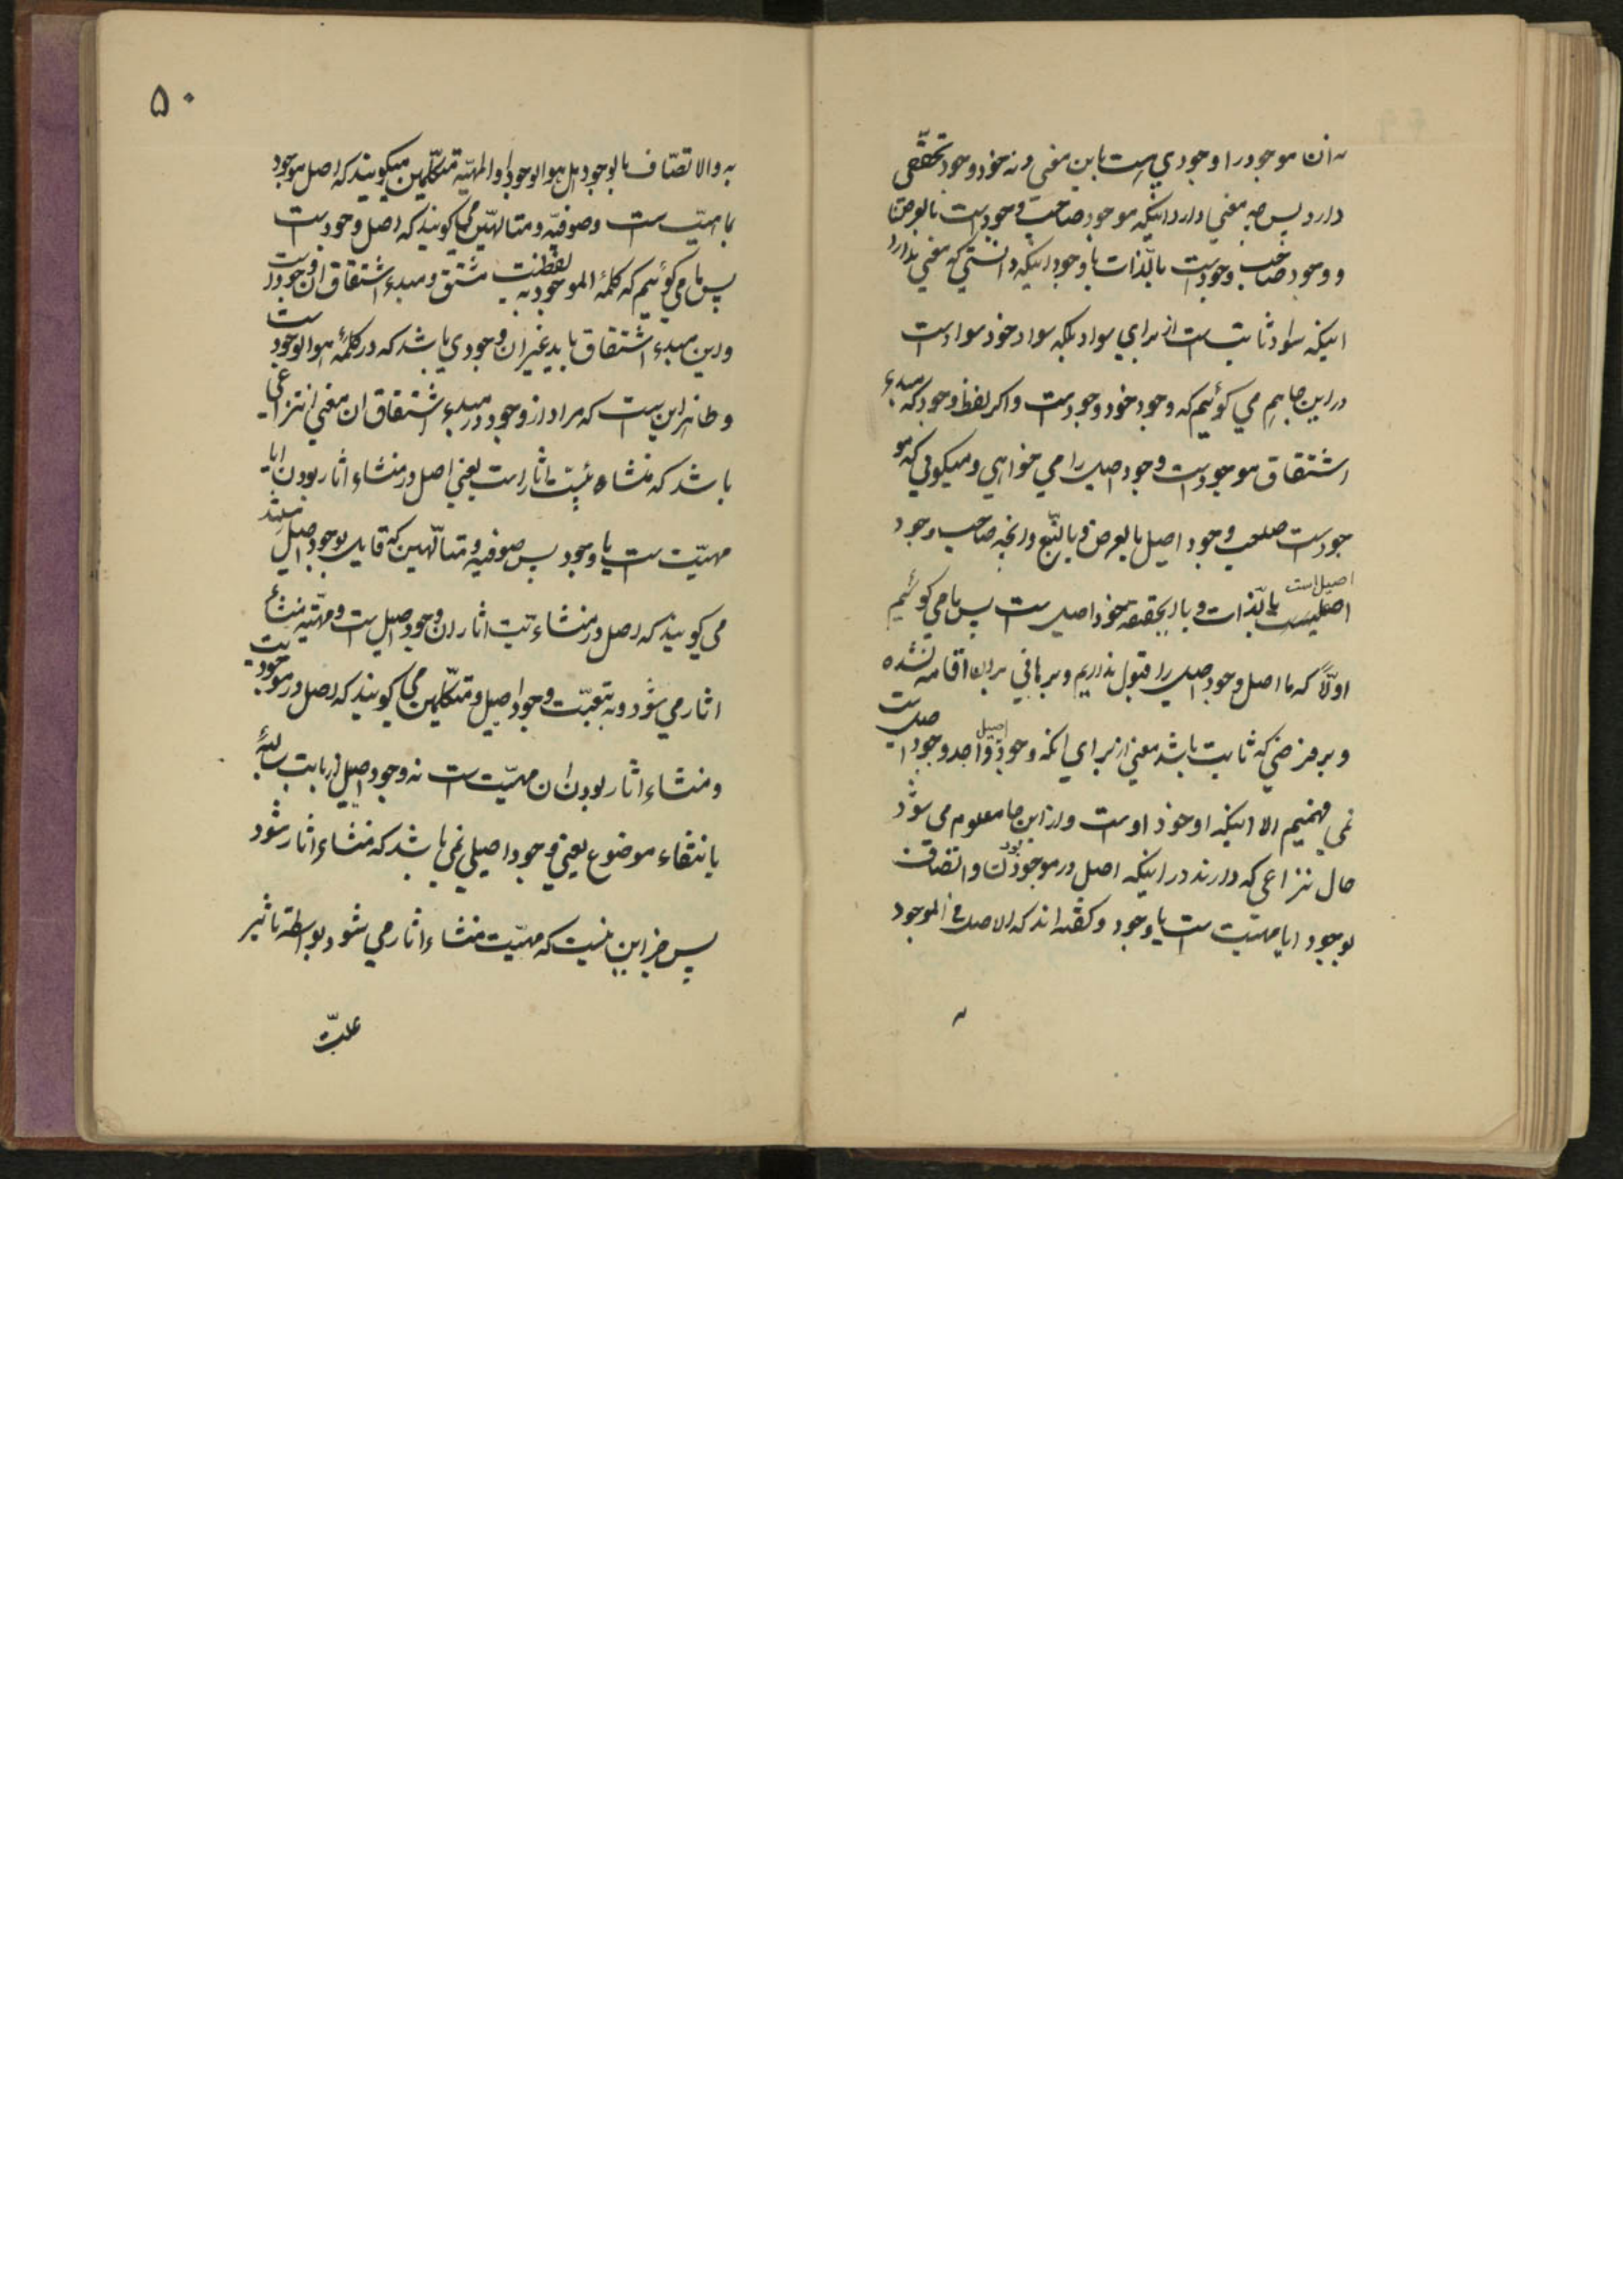 نه ان موجود را وجودی است باین معنی و نه خود وجود تحققی
دارد پس چه معنی دارد اینکه موجود صاحب وجود است بالعرض
و وجود صاحب وجود است بالذات با وجود اینکه دانستی که معنی ندارد
اینکه سواد ثابت است از برای سواد بلکه سواد خود سواد است
در این جا هم می گوئیم که وجود خود وجود است و اگر لفظ وجود که مبدء
اشتقاق موجود است وجود اصیل را می خواهی و میگوئی که مو
جود است صاحب وجود اصیل بالعرض و بالتبع و انچه صاحب وجود
اصیل است
بالذات و بالحقیقه خود اصیل است پس ما می گوئیم
اولاً که ما اصل وجود اصیل را قبول نداریم و برهانی بران اقامه نشده
و بر فرضی که ثابت باشد معنی از برای انکه وجود اصیل واجد وجود اصیل است
نمی فهمیم الا اینکه او خود اوست و از این جا معلوم می شود
حال نزاعی که دارند در اینکه اصل در موجود بودن و اتصاف
بوجود ایا مهیّت است یا وجود و گفته اند که الاصل فی الموجود
یه
۵۰
یه والاتصاف بالوجود هل هو الوجود او المهیّة متکلّمین میگویند که اصل موجود
ماهیّت است و صوفیّه و متالهّین می گویند که اصل وجود است
پس ما می گوئیم که کلمهٔ الموجودیه لفظیست مشتق و مبدء اشتقاق ان وجود است
و این مبدء اشتقاق باید غیر ان وجودی باشد که در کلمهٔ هو الوجود است
و ظاهر این است که مراد از وجود در مبدء اشتقاق ان معنی انتزاعی
باشد که منشاء یّت اثار است یعنی اصل در منشاء اثار بودن ایا
مهیّت است یا وجود پس صوفیه و متالّهین که قایل بوجود اصیل میباشند
می گویند که اصل در منشاء یّت اثار ان وجود اصیل است و مهیّه منشاء
اثار می شود و به تبعیّت وجود اصیل و متکلّمین می گویند که اصل در موجودیت
و منشاء اثار بودن ان مهیّت است نه وجود اصیل از بابت سالبهٔ
بانتفاء موضوع یعنی وجود اصیلی نمی باشد که منشاء اثار شود
پس جز این نیست که مهیّت منشاء اثار می شود بواسطه تاثیر
علّت